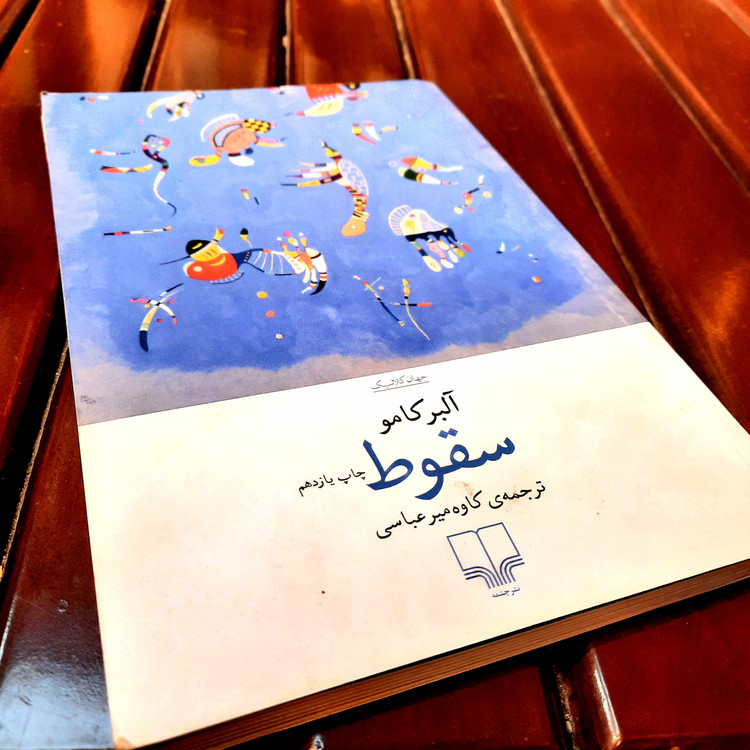 جهان کلاسیک
آلبر کامو
سقوط
چاپ یازدهم
ترجمه‌ی کاوه میرعباسی
نشر چشمه